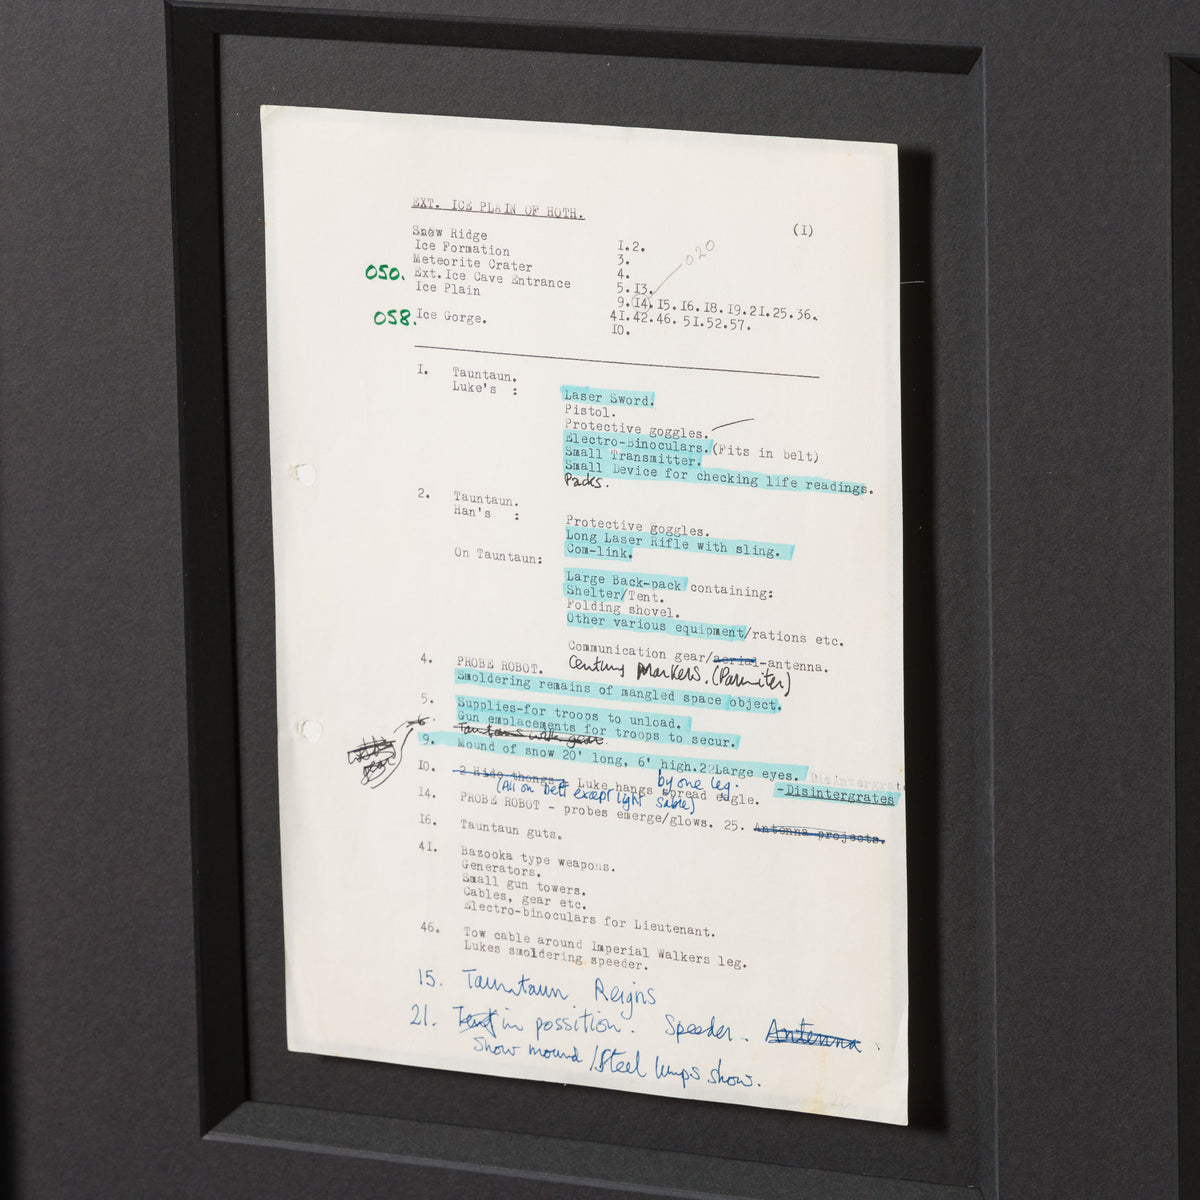 EXT. ICE PLAIN OF HOTH.
(I)
Snow Ridge I.2.
Ice Formation 3.
020
Meteorite Crater 4.
050. Ext.Ice Cave Entrance 5.I3.
Ice Plain 9.I4.I5.I6.I8.I9.2I.25.36.
4I.42.46.5I.52.57.
058. Ice Gorge. IO.
I. Tauntaun.
Luke's :
Laser Sword.
Pistol.
Protective goggles.
Electro-Binoculars.(Fits in belt)
Small Transmitter.
Small Device for checking life readings.
Packs.
2. Tauntaun.
Han's :
Protective goggles.
Long Laser Rifle with sling.
On Tauntaun: Com-link.
Large Back-pack containing:
Shelter/Tent.
Folding shovel.
Other various equipment/rations etc.
Communication gear/aerial-antenna.
4. PROBE ROBOT. Markers.
Smoldering remains of mangled space object.
5. Supplies-for troops to unload.
Gun emplacements for troops to secur.
Tauntauns with gear.
9. Mound of snow 20' long, 6' high. Large eyes. Disintergrate
-Disintergrates
by one leg.
IO. 2 Hide thongs. Luke hangs spread eagle.
(All on belt except light sable)
I4. PROBE ROBOT - probes emerge/glows. 25. Antenna projects.
I6. Tauntaun guts.
4I. Bazooka type weapons.
Generators.
Small gun towers.
Cables, gear etc.
Electro-binoculars for Lieutenant.
46. Tow cable around Imperial Walkers leg.
Lukes smoldering speeder.
15. Tauntaun Reigns
21. Tent in possition. Speeder. Antenna.
Snow mound / Steel lumps show.